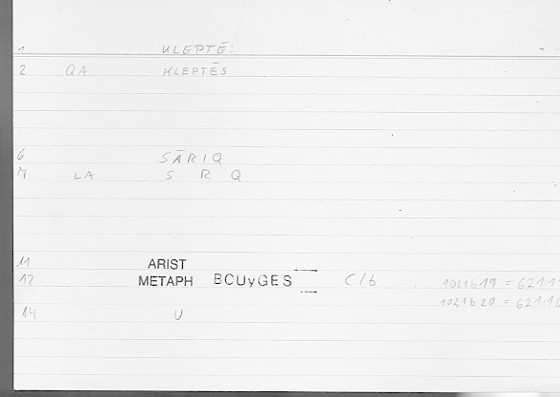 1 KLEPTĒ:
2 QA KLEPTĒS
6 SĀRIQ
M LA S R Q
11 ARIST
12 METAPH BOUyGES C/b 1021b19 = 621.1
1021b20 = 621.16
14 U